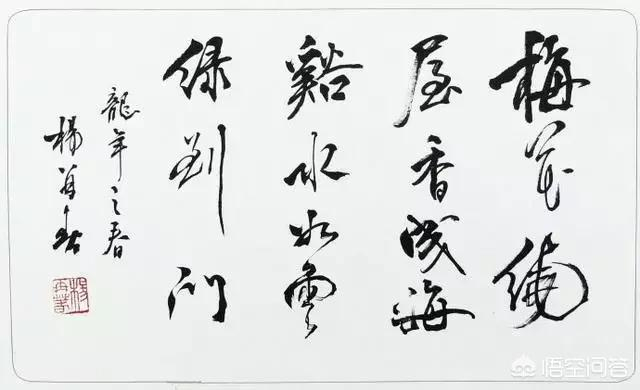 梅花绕
屋香成海
谿水如雲
绿到门
龍年之春
楊再春
悟空问答